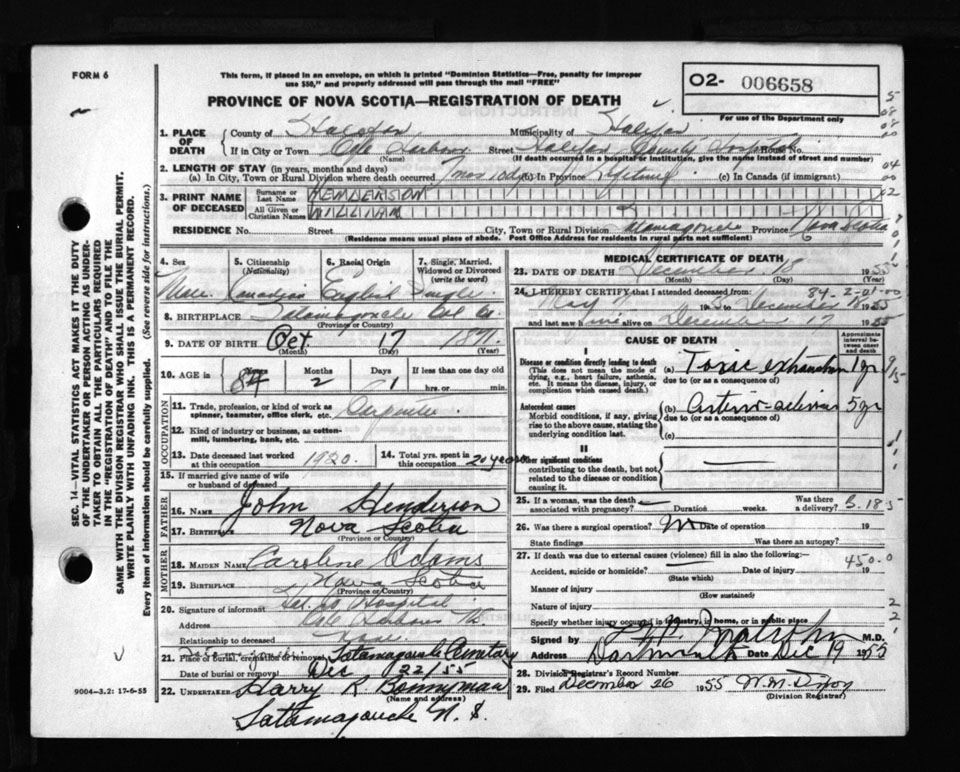 FORM 6
This form, if placed in an envelope, on which is printed "Dominion Statistics—Free, penalty for improper
use $50," and properly addressed will pass through the mail "FREE"
PROVINCE OF NOVA SCOTIA—REGISTRATION OF DEATH
O2- 006658
For use of the Department only
1. PLACE OF DEATH
County of Halifax Municipality of Halifax
If in City or Town Cole Harbour Street Halifax County Hospital House No.
(Name) (If death occurred in a hospital or institution, give the name instead of street and number)
2. LENGTH OF STAY (in years, months and days)
(a) In City or Town or Rural Division where death occurred 7 mos 10 dys (b) In Province Lifetime (c) In Canada (if immigrant)
3. PRINT NAME OF DECEASED
Surname or Last Name HENDERSON
All Given or Christian Names WILLIAM
RESIDENCE No. Street City, Town or Rural Division Tatamagouche Province Nova Scotia
(Residence means usual place of abode. Post Office Address for residents in rural parts not sufficient)
4. Sex
Male
5. Citizenship
(Nationality)
Canadian
6. Racial Origin
English
7. Single, Married, Widowed or Divorced
(write the word)
Single
8. BIRTHPLACE Tatamagouche Col. Co.
(Province or Country)
9. DATE OF BIRTH Oct 17 1871
(Month) (Day) (Year)
10. AGE in Years Months Days If less than one day old
84 2 1 hrs. or min.
OCCUPATION
11. Trade, profession, or kind of work as
spinner, teamster, office clerk, etc. Carpenter
12. Kind of industry or business, as cotton-
mill, lumbering, bank, etc.
13. Date deceased last worked
at this occupation 1920
14. Total yrs. spent in
this occupation 20 years
15. If married give name of wife
or husband of deceased
FATHER
16. Name John Henderson
17. Birthplace Nova Scotia
(Province or Country)
MOTHER
18. MAIDEN NAME Caroline Adams
19. BIRTHPLACE Nova Scotia
(Province or Country)
20. Signature of informant Hal. Co Hospital
Address Cole Harbour NS
Relationship to deceased None
21. Place of burial, cremation or removal Tatamagouche Cemetary
Date of burial or removal Dec /22/55
22. UNDERTAKER Harry R Bonnyman
(Name and address)
Tatamagouche N. S.
9004—3.2: 17-6-55
MEDICAL CERTIFICATE OF DEATH
23. DATE OF DEATH December 18 1955
(Month) (Day)
24. I HEREBY CERTIFY that I attended deceased from:
84-2-01-00
May 1955 December 18 1955
and last saw him alive on December 17 1955
CAUSE OF DEATH
Approximate interval between onset and death
I
Disease or condition directly leading to death
(This does not mean the mode of dying, e.g., heart failure, asthenia, etc. It means the disease, injury, or complication which caused death.)
(a) Toxic exhaustion 1 yr
due to (or as a consequence of)
Antecedent causes
Morbid conditions, if any, giving rise to the above cause, stating the underlying condition last.
(b) Arterio-sclerosis 5 yr
due to (or as a consequence of)
(c)
II
Other significant conditions
contributing to the death, but not related to the disease or condition causing it.
25. If a woman, was the death associated with pregnancy? Duration weeks. Was there a delivery?
26. Was there a surgical operation? No Date of operation 19
State findings Was there an autopsy?
27. If death was due to external causes (violence) fill in also the following:—
Accident, suicide or homicide? Date of injury 19
(State which)
Manner of injury
(How sustained)
Nature of injury
Specify whether injury occurred in industry, in home, or in public place
Signed by M.D.
Address Dartmouth Date Dec 19 1955
28. Division Registrar's Record Number
29. Filed December 26 1955 W. M. Dixon
(Division Registrar)
SEC. 14—VITAL STATISTICS ACT MAKES IT THE DUTY
OF THE UNDERTAKER OR PERSON ACTING AS UNDER-
TAKER TO OBTAIN ALL THE PARTICULARS REQUIRED
IN THE "REGISTRATION OF DEATH" AND TO FILE THE
SAME WITH THE DIVISION REGISTRAR WHO SHALL ISSUE THE BURIAL PERMIT.
WRITE PLAINLY WITH UNFADING INK. THIS IS A PERMANENT RECORD.
Every item of information should be carefully supplied. (See reverse side for instructions.)